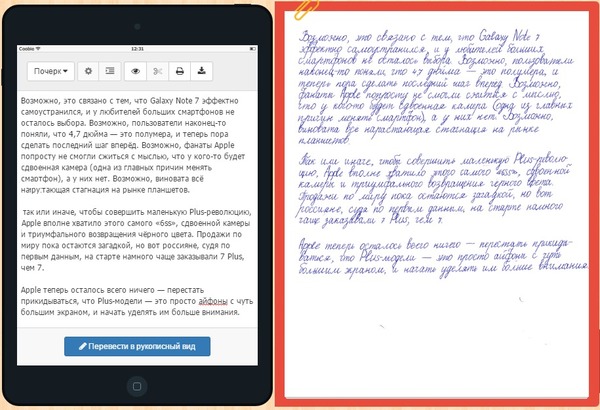 Cooblo 12:31
Почерк
Возможно, это связано с тем, что Galaxy Note 7 эффектно
самоустранился, и у любителей больших смартфонов не
осталось выбора. Возможно, пользователи наконец-то
поняли, что 4,7 дюйма — это полумера, и теперь пора
сделать последний шаг вперёд. Возможно, фанаты Apple
попросту не смогли сжиться с мыслью, что у кого-то будет
сдвоенная камера (одна из главных причин менять
смаотфон), а у них нет. Возможно, виновата всё
нару:тающая стагнация на рынке планшетов.
так или иначе, чтобы совершить маленькую Plus-революцию,
Apple вполне хватило этого самого «6ss», сдвоенной камеры
и триумфального возвращения чёрного цвета. Продажи по
миру пока остаются загадкой, но вот россияне, судя по
первым данным, на старте намного чаще заказывали 7 Plus,
чем 7.
Apple теперь осталось всего ничего — перестать
прикидываться, что Plus-модели — это просто айфоны с чуть
большим экраном, и начать уделять им больше внимания.
Перевести в рукописный вид
Возможно, это связано с тем, что Galaxy Note 7
эффектно самоустранился, и у любителей больших
смартфонов не осталось выбора. Возможно, пользователи
наконец-то поняли, что 4,7 дюйма — это полумера, и
теперь пора сделать последний шаг вперёд. Возможно,
фанаты Apple попросту не смогли сжиться с мыслью,
что у кого-то будет сдвоенная камера (одна из главных
причин менять смартфон), а у них нет. Возможно,
виновата всё нарастающая стагнация на рынке
планшетов.
Так или иначе, чтобы совершить маленькую Plus-револю-
цию, Apple вполне хватило этого самого «6ss», сдвоенной
камеры и триумфального возвращения чёрного цвета.
Продажи по миру пока остаются загадкой, но вот
россияне, судя по первым данным, на старте намного
чаще заказывали 7 Plus, чем 7.
Apple теперь осталось всего ничего — перестать прикиды-
ваться, что Plus-модели — это просто айфоны с чуть
большим экраном, и начать уделять им больше внимания.